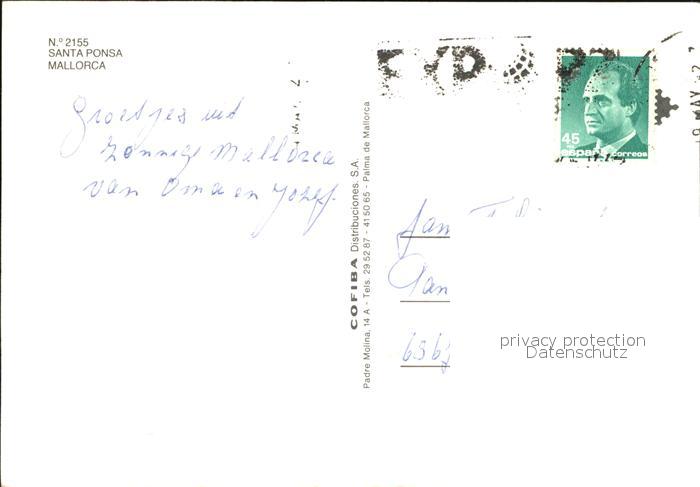 N.º 2155
SANTA PONSA
MALLORCA
Groetjes uit
zonnige Mallorca
van Oma en Jozef.
COFIBA Distribuciones. S.A.
Padre Molina, 14 A - Tels. 29 52 87 - 41 50 65 - Palma de Mallorca
45
españa correos
privacy protection
Datenschutz